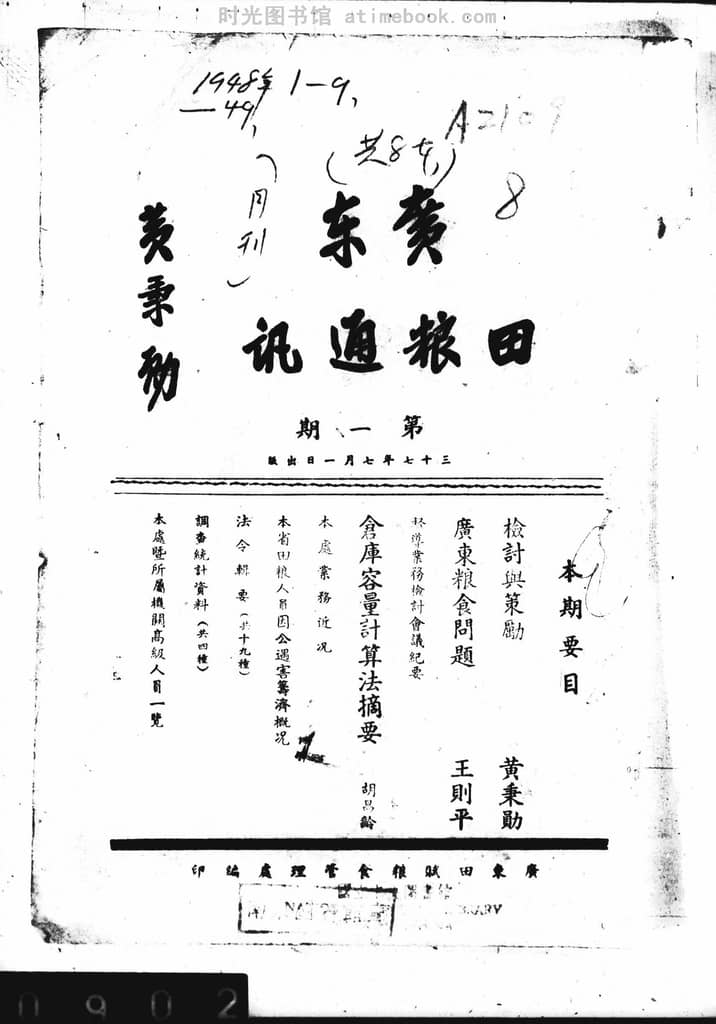 时光图书馆 atimebook.com
1948年 1—9,
—49,
(共8本)
A2109
8
(月刊)
廣东
田粮通讯
黃秉勛
第一期
三十七年七月一日出版
本期要目
檢討與策勵 黃秉勛
廣東粮食問題 王則平
督導業務檢討會議紀要
倉庫容量計算法摘要 胡昌齡
本處業務近況
本省田粮人員因公遇害籌濟概况
法令輯要(共十九種)
調查統計資料(共四種)
本處暨所屬機關高級人員一覽
廣東田賦粮食管理處編印
0902